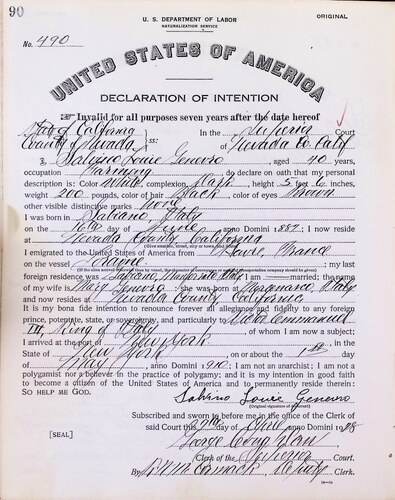 90
U. S. DEPARTMENT OF LABOR
NATURALIZATION SERVICE
ORIGINAL
No. 490
UNITED STATES OF AMERICA
DECLARATION OF INTENTION
Invalid for all purposes seven years after the date hereof
State of California
County of Nevada ss: In the Superior Court
of Nevada Co Calif
I, Salvino Louie Genovro, aged 40 years,
occupation Farming, do declare on oath that my personal
description is: Color White, complexion Dark, height 5 feet 6 inches,
weight 200 pounds, color of hair Black, color of eyes Brown
other visible distinctive marks none
I was born in Italy
on the day of June, anno Domini 1887; I now reside
at Nevada County California
I emigrated to the United States of America from Havre, France
on the vessel; my last
foreign residence was; I am married; the name
of my wife is Mary Genovro; she was born at Italy
and now resides at Nevada County, California
It is my bona fide intention to renounce forever all allegiance and fidelity to any foreign
prince, potentate, state, or sovereignty, and particularly to Victor Emmanuel
III, King of Italy, of whom I am now a subject;
I arrived at the port of New York, in the
State of New York, on or about the 1st day
of May, anno Domini 1910; I am not an anarchist; I am not a
polygamist nor a believer in the practice of polygamy; and it is my intention in good faith
to become a citizen of the United States of America and to permanently reside therein:
SO HELP ME GOD.
Salvino Louie Genovro
(Original signature of declarant)
Subscribed and sworn to before me in the office of the Clerk of
said Court this day of April anno Domini 1928
[SEAL]
George
Clerk of the Superior Court.
By R. N. McCormack, Deputy Clerk.